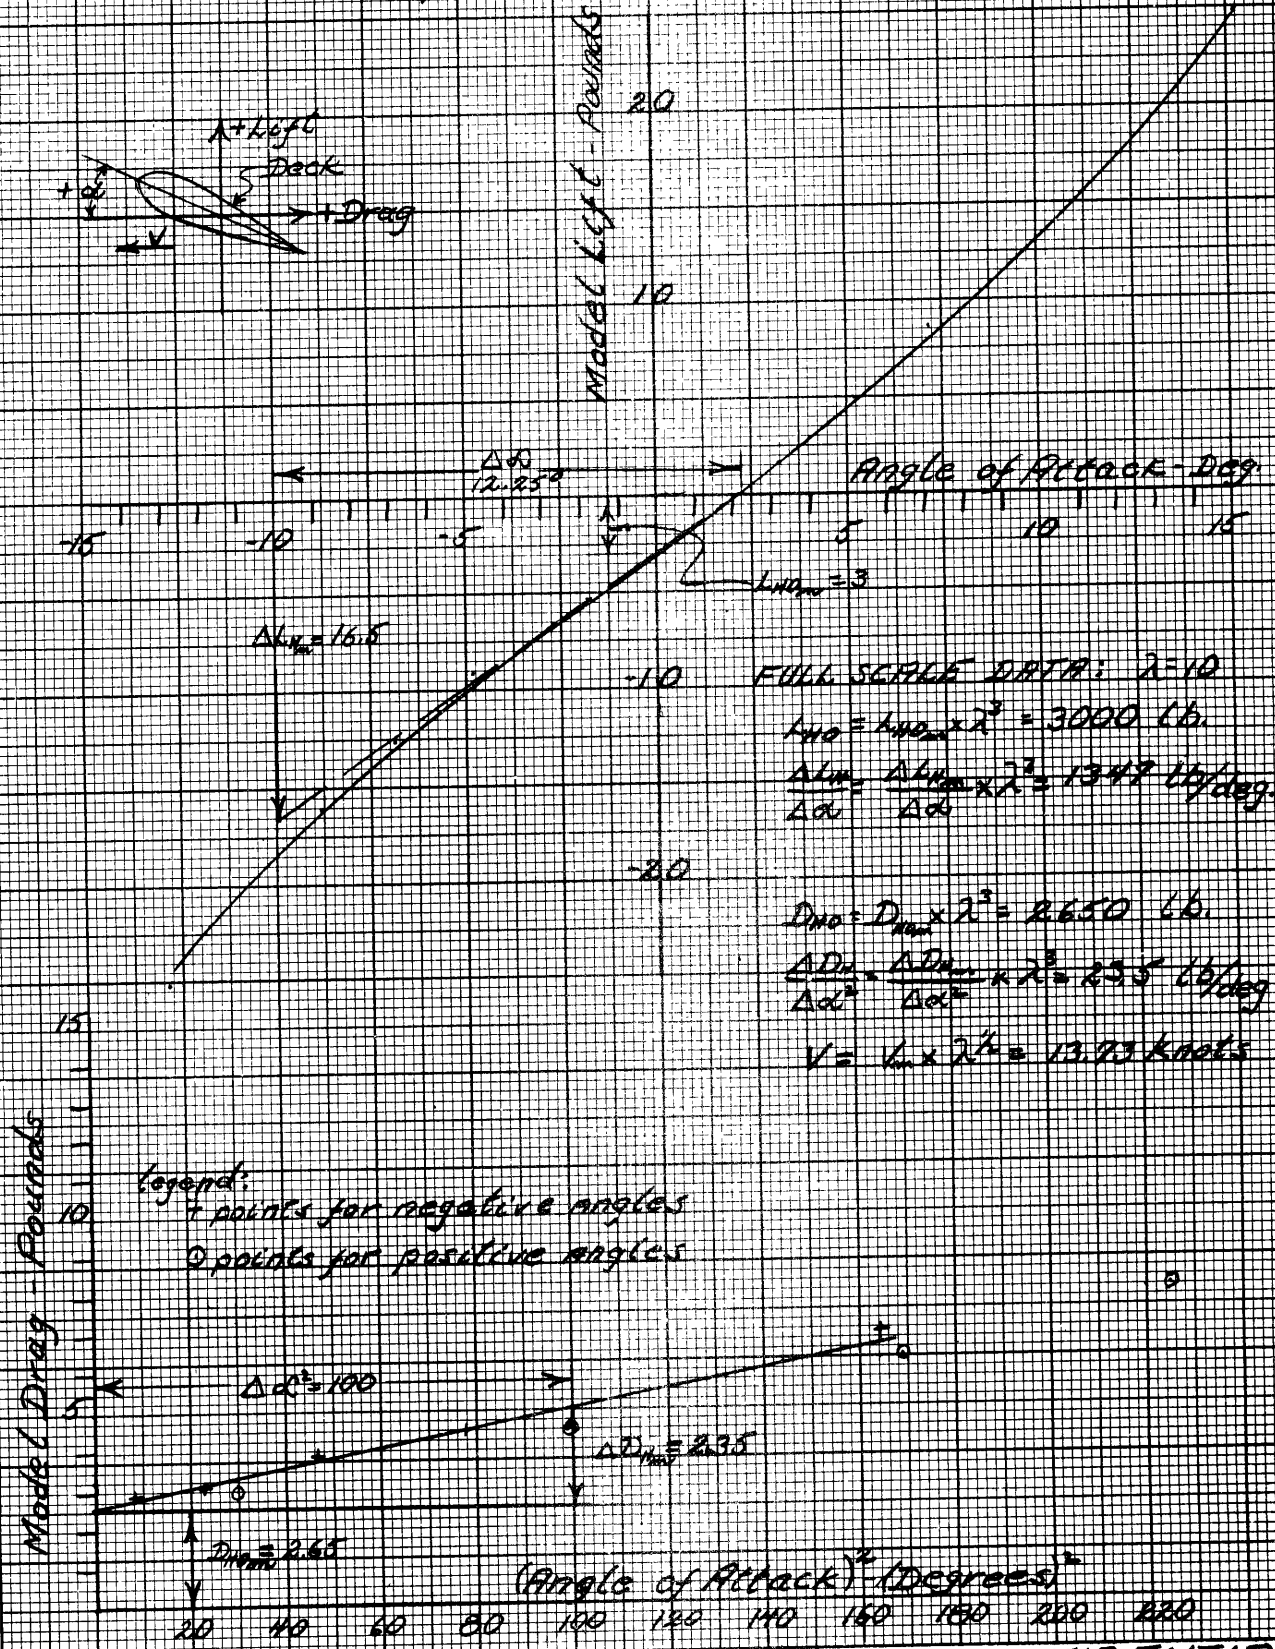 Model Lift - Pounds
20
+Lift
Deck
+ α
+Drag
V
10
Δα
12.25°
Angle of Attack - Deg.
-15 -10 -5 5 10 15
L_HOm = 3
ΔL_Hm = 16.5
-10
FULL SCALE DATA: λ=10
L_HO = L_HOm × λ³ = 3000 Lb.
ΔL_H/Δα = ΔL_Hm/Δα × λ³ = 1347 Lb/deg.
-20
D_HO = D_HOm × λ³ = 2650 Lb.
ΔD_H/Δα² = ΔD_Hm/Δα² × λ³ = 23.5 Lb/deg
V = V_m × λ^½ = 13.93 knots
15
Model Drag - Pounds
Legend:
+ points for negative angles
10
⊙ points for positive angles
Δα²=100
5
ΔD_Hm = 2.35
D_HOm = 2.65
(Angle of Attack)² - (Degrees)²
20 40 60 80 100 120 140 160 180 200 220